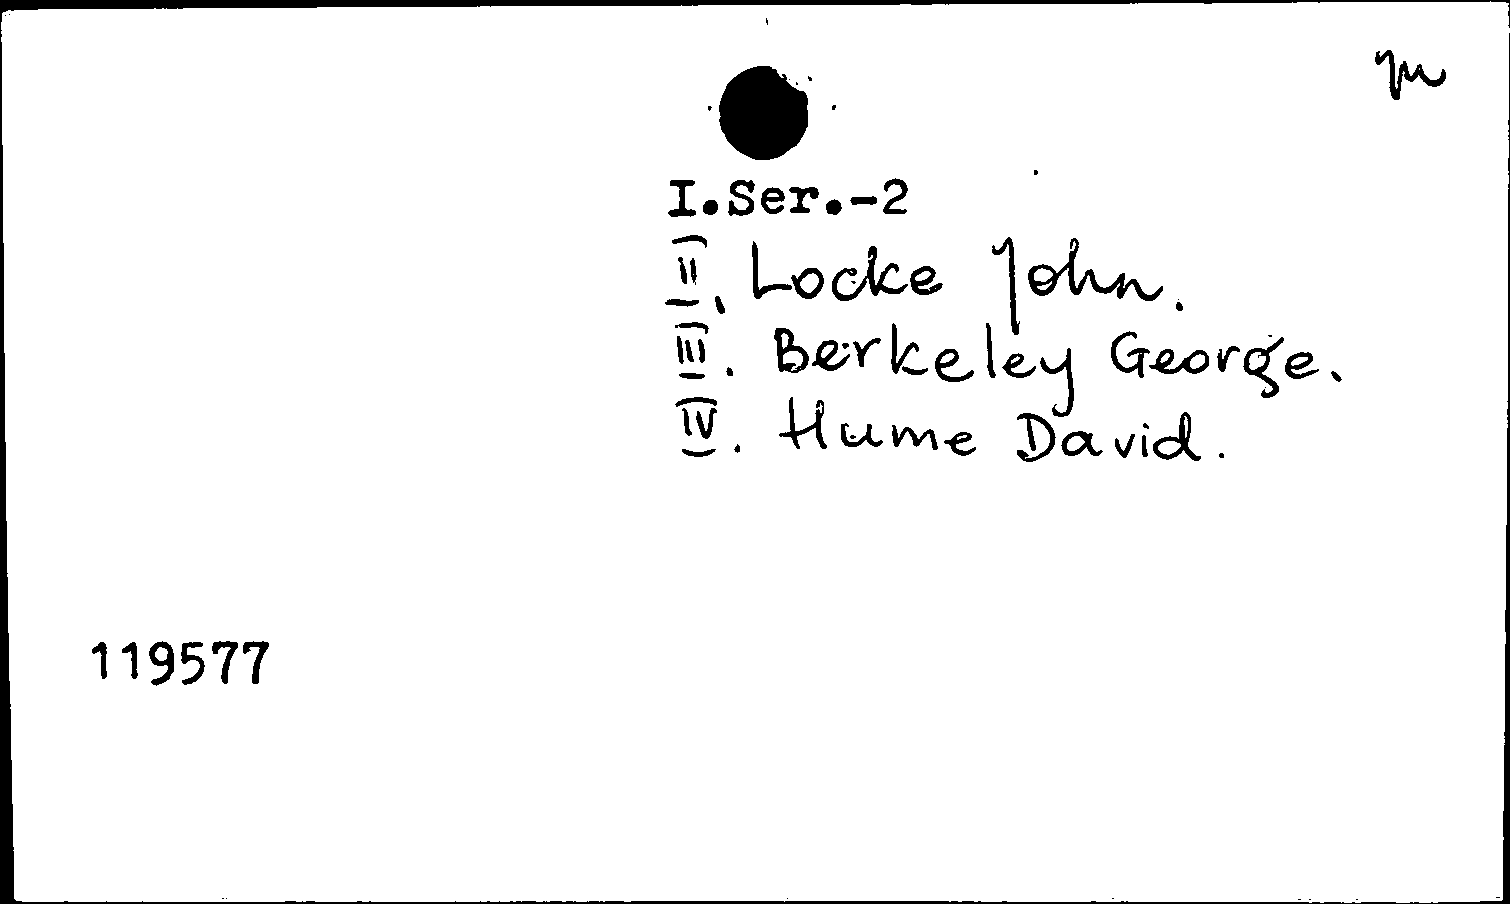 I.Ser.-2
II. Locke John.
III. Berkeley George.
IV. Hume David.
119577